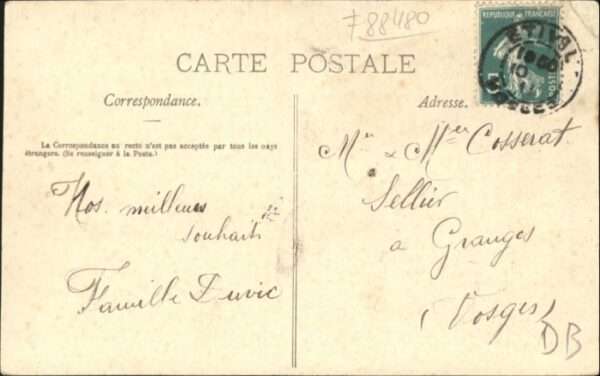 F88480
RÉPUBLIQUE FRANÇAISE
POSTES
ETIVAL
VOSGES
CARTE POSTALE
Correspondance.
La Correspondance au recto n'est pas acceptée par tous les pays
étrangers. (Se renseigner à la Poste.)
Nos meilleurs
souhaits
Famille Duvic
Adresse.
Mr & Mme Cosserat
Sellier
a Granges
(Vosges)
DB